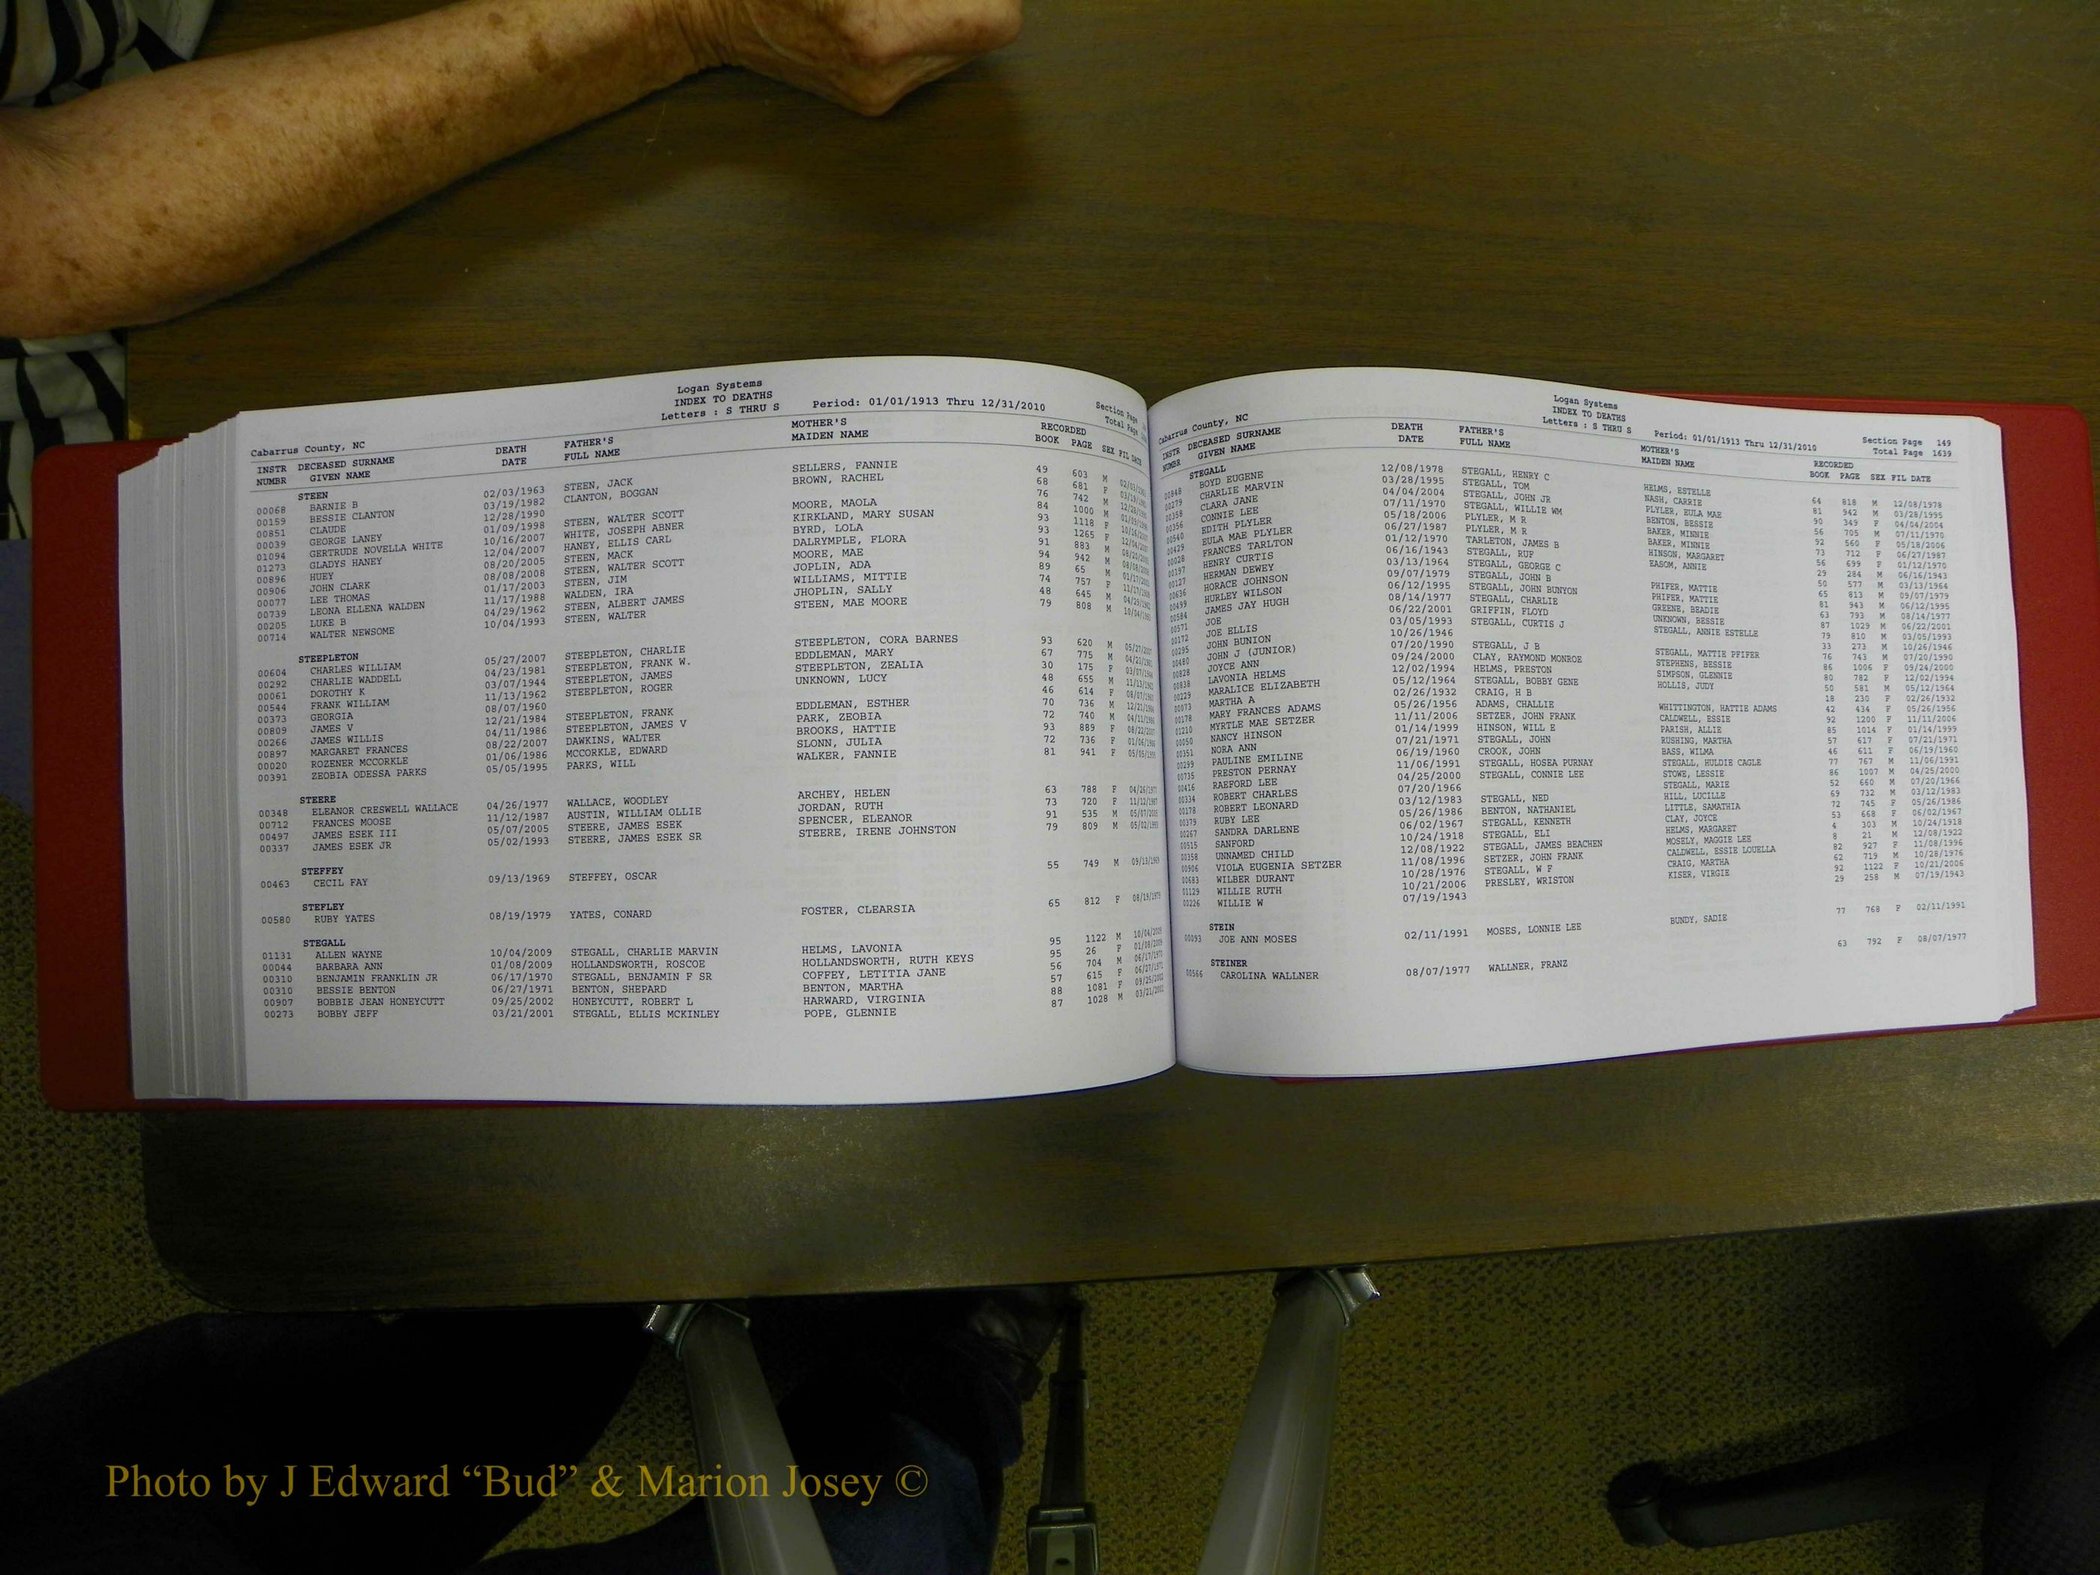 Logan Systems
INDEX TO DEATHS
Letters : S THRU S Period: 01/01/1913 Thru 12/31/2010 Section Page
Cabarrus County, NC Total Page
INSTR DECEASED SURNAME DEATH FATHER'S MOTHER'S RECORDED
NUMBR GIVEN NAME DATE FULL NAME MAIDEN NAME BOOK PAGE SEX FIL DATE
STEEN
00068 BARNIE B 02/03/1963 STEEN, JACK SELLERS, FANNIE 49 603 M
00159 BESSIE CLANTON 03/19/1982 CLANTON, BOGGAN BROWN, RACHEL 68 681 F
00851 CLAUDE 12/28/1990 76 742 M
00039 GEORGE LANEY 01/09/1998 STEEN, WALTER SCOTT MOORE, MAOLA 84 1000 M
01094 GERTRUDE NOVELLA WHITE 10/16/2007 WHITE, JOSEPH ABNER KIRKLAND, MARY SUSAN 93 1118 F
01273 GLADYS HANEY 12/04/2007 HANEY, ELLIS CARL BYRD, LOLA 93 1265 F
00896 HUEY 08/20/2005 STEEN, MACK DALRYMPLE, FLORA 91 883 M
00906 JOHN CLARK 08/08/2008 STEEN, WALTER SCOTT MOORE, MAE 94 942 M
00077 LEE THOMAS 01/17/2003 STEEN, JIM JOPLIN, ADA 89 65 M
00739 LEONA ELLENA WALDEN 11/17/1988 WALDEN, IRA WILLIAMS, MITTIE 74 757 F
00205 LUKE B 04/29/1962 STEEN, ALBERT JAMES JHOPLIN, SALLY 48 645 M
00714 WALTER NEWSOME 10/04/1993 STEEN, WALTER STEEN, MAE MOORE 79 808 M
STEEPLETON
00604 CHARLES WILLIAM 05/27/2007 STEEPLETON, CHARLIE STEEPLETON, CORA BARNES 93 620 M 05/27/2007
00292 CHARLIE WADDELL 04/23/1981 STEEPLETON, FRANK W. EDDLEMAN, MARY 67 775 M
00061 DOROTHY K 03/07/1944 STEEPLETON, JAMES STEEPLETON, ZEALIA 30 175 F
00544 FRANK WILLIAM 11/13/1962 STEEPLETON, ROGER UNKNOWN, LUCY 48 655 M
00373 GEORGIA 08/07/1960 46 614 F
00809 JAMES V 12/21/1984 STEEPLETON, FRANK EDDLEMAN, ESTHER 70 736 M 12/21/1984
00266 JAMES WILLIS 04/11/1986 STEEPLETON, JAMES V PARK, ZEOBIA 72 740 M 04/11/1986
00897 MARGARET FRANCES 08/22/2007 DAWKINS, WALTER BROOKS, HATTIE 93 889 F 08/22/2007
00020 ROZENER MCCORKLE 01/06/1986 MCCORKLE, EDWARD SLONN, JULIA 72 736 F 01/06/1986
00391 ZEOBIA ODESSA PARKS 05/05/1995 PARKS, WILL WALKER, FANNIE 81 941 F 05/05/1995
STEERE
00348 ELEANOR CRESWELL WALLACE 04/26/1977 WALLACE, WOODLEY ARCHEY, HELEN 63 788 F 04/26/1977
00712 FRANCES MOOSE 11/12/1987 AUSTIN, WILLIAM OLLIE JORDAN, RUTH 73 720 F 11/12/1987
00497 JAMES ESEK III 05/07/2005 STEERE, JAMES ESEK SPENCER, ELEANOR 91 535 M 05/07/2005
00337 JAMES ESEK JR 05/02/1993 STEERE, JAMES ESEK SR STEERE, IRENE JOHNSTON 79 809 M 05/02/1993
STEFFEY
00463 CECIL FAY 09/13/1969 STEFFEY, OSCAR 55 749 M 09/13/1969
STEFLEY
00580 RUBY YATES 08/19/1979 YATES, CONARD FOSTER, CLEARSIA 65 812 F 08/19/1979
STEGALL
01131 ALLEN WAYNE 10/04/2009 STEGALL, CHARLIE MARVIN HELMS, LAVONIA 95 1122 M 10/04/2009
00044 BARBARA ANN 01/08/2009 HOLLANDSWORTH, ROSCOE HOLLANDSWORTH, RUTH KEYS 95 26 F 01/08/2009
00310 BENJAMIN FRANKLIN JR 06/17/1970 STEGALL, BENJAMIN F SR COFFEY, LETITIA JANE 56 704 M 06/17/1970
00310 BESSIE BENTON 06/27/1971 BENTON, SHEPARD BENTON, MARTHA 57 615 F 06/27/1971
00907 BOBBIE JEAN HONEYCUTT 09/25/2002 HONEYCUTT, ROBERT L HARWARD, VIRGINIA 88 1081 F 09/25/2002
00273 BOBBY JEFF 03/21/2001 STEGALL, ELLIS MCKINLEY POPE, GLENNIE 87 1028 M 03/21/2001
Logan Systems
INDEX TO DEATHS
Letters : S THRU S Period: 01/01/1913 Thru 12/31/2010 Section Page 149
Cabarrus County, NC Total Page 1639
INSTR DECEASED SURNAME DEATH FATHER'S MOTHER'S RECORDED
NUMBR GIVEN NAME DATE FULL NAME MAIDEN NAME BOOK PAGE SEX FIL DATE
STEGALL
00848 BOYD EUGENE 12/08/1978 STEGALL, HENRY C HELMS, ESTELLE 64 818 M 12/08/1978
00279 CHARLIE MARVIN 03/28/1995 STEGALL, TOM NASH, CARRIE 81 942 M 03/28/1995
00358 CLARA JANE 04/04/2004 STEGALL, JOHN JR PLYLER, EULA MAE 90 349 F 04/04/2004
00356 CONNIE LEE 07/11/1970 STEGALL, WILLIE WM BENTON, BESSIE 56 705 M 07/11/1970
00540 EDITH PLYLER 05/18/2006 PLYLER, M R BAKER, MINNIE 92 560 F 05/18/2006
00429 EULA MAE PLYLER 06/27/1987 PLYLER, M R BAKER, MINNIE 73 712 F 06/27/1987
00028 FRANCES TARLTON 01/12/1970 TARLETON, JAMES B HINSON, MARGARET 56 699 F 01/12/1970
00197 HENRY CURTIS 06/16/1943 STEGALL, RUF EASOM, ANNIE 29 284 M 06/16/1943
00127 HERMAN DEWEY 03/13/1964 STEGALL, GEORGE C 50 577 M 03/13/1964
00636 HORACE JOHNSON 09/07/1979 STEGALL, JOHN B PHIFER, MATTIE 65 813 M 09/07/1979
00499 HURLEY WILSON 06/12/1995 STEGALL, JOHN BUNYON PHIFER, MATTIE 81 943 M 06/12/1995
00584 JAMES JAY HUGH 08/14/1977 STEGALL, CHARLIE GREENE, BEADIE 63 793 M 08/14/1977
00571 JOE 06/22/2001 GRIFFIN, FLOYD UNKNOWN, BESSIE 87 1029 M 06/22/2001
00172 JOE ELLIS 03/05/1993 STEGALL, CURTIS J STEGALL, ANNIE ESTELLE 79 810 M 03/05/1993
00295 JOHN BUNION 10/26/1946 33 273 M 10/26/1946
00480 JOHN J (JUNIOR) 07/20/1990 STEGALL, J B STEGALL, MATTIE PFIFER 76 743 M 07/20/1990
00828 JOYCE ANN 09/24/2000 CLAY, RAYMOND MONROE STEPHENS, BESSIE 86 1006 F 09/24/2000
00838 LAVONIA HELMS 12/02/1994 HELMS, PRESTON SIMPSON, GLENNIE 80 782 F 12/02/1994
00229 MARALICE ELIZABETH 05/12/1964 STEGALL, BOBBY GENE HOLLIS, JUDY 50 581 M 05/12/1964
00073 MARTHA A 02/26/1932 CRAIG, H B 18 230 F 02/26/1932
00178 MARY FRANCES ADAMS 05/26/1956 ADAMS, CHALLIE WHITTINGTON, HATTIE ADAMS 42 434 F 05/26/1956
01210 MYRTLE MAE SETZER 11/11/2006 SETZER, JOHN FRANK CALDWELL, ESSIE 92 1200 F 11/11/2006
00050 NANCY HINSON 01/14/1999 HINSON, WILL E PARISH, ALLIE 85 1014 F 01/14/1999
00351 NORA ANN 07/21/1971 STEGALL, JOHN RUSHING, MARTHA 57 617 F 07/21/1971
00299 PAULINE EMILINE 06/19/1960 CROOK, JOHN BASS, WILMA 46 611 F 06/19/1960
00735 PRESTON PERNAY 11/06/1991 STEGALL, HOSEA PURNAY STEGALL, HULDIE CAGLE 77 767 M 11/06/1991
00416 RAEFORD LEE 04/25/2000 STEGALL, CONNIE LEE STOWE, LESSIE 86 1007 M 04/25/2000
00334 ROBERT CHARLES 07/20/1966 STEGALL, MARIE 52 660 M 07/20/1966
00178 ROBERT LEONARD 03/12/1983 STEGALL, NED HILL, LUCILLE 69 732 M 03/12/1983
00379 RUBY LEE 05/26/1986 BENTON, NATHANIEL LITTLE, SAMATHIA 72 745 F 05/26/1986
00267 SANDRA DARLENE 06/02/1967 STEGALL, KENNETH CLAY, JOYCE 53 668 F 06/02/1967
00515 SANFORD 10/24/1918 STEGALL, ELI HELMS, MARGARET 4 303 M 10/24/1918
00358 UNNAMED CHILD 12/08/1922 STEGALL, JAMES BEACHEN MOSELY, MAGGIE LEE 8 21 M 12/08/1922
00906 VIOLA EUGENIA SETZER 11/08/1996 SETZER, JOHN FRANK CALDWELL, ESSIE LOUELLA 82 927 F 11/08/1996
00683 WILBER DURANT 10/28/1976 STEGALL, W F CRAIG, MARTHA 62 719 M 10/28/1976
01129 WILLIE RUTH 10/21/2006 PRESLEY, WRISTON KISER, VIRGIE 92 1122 F 10/21/2006
00226 WILLIE W 07/19/1943 29 258 M 07/19/1943
STEIN
00093 JOE ANN MOSES 02/11/1991 MOSES, LONNIE LEE BUNDY, SADIE 77 768 F 02/11/1991
STEINER
00566 CAROLINA WALLNER 08/07/1977 WALLNER, FRANZ 63 792 F 08/07/1977
Photo by J Edward “Bud” & Marion Josey ©